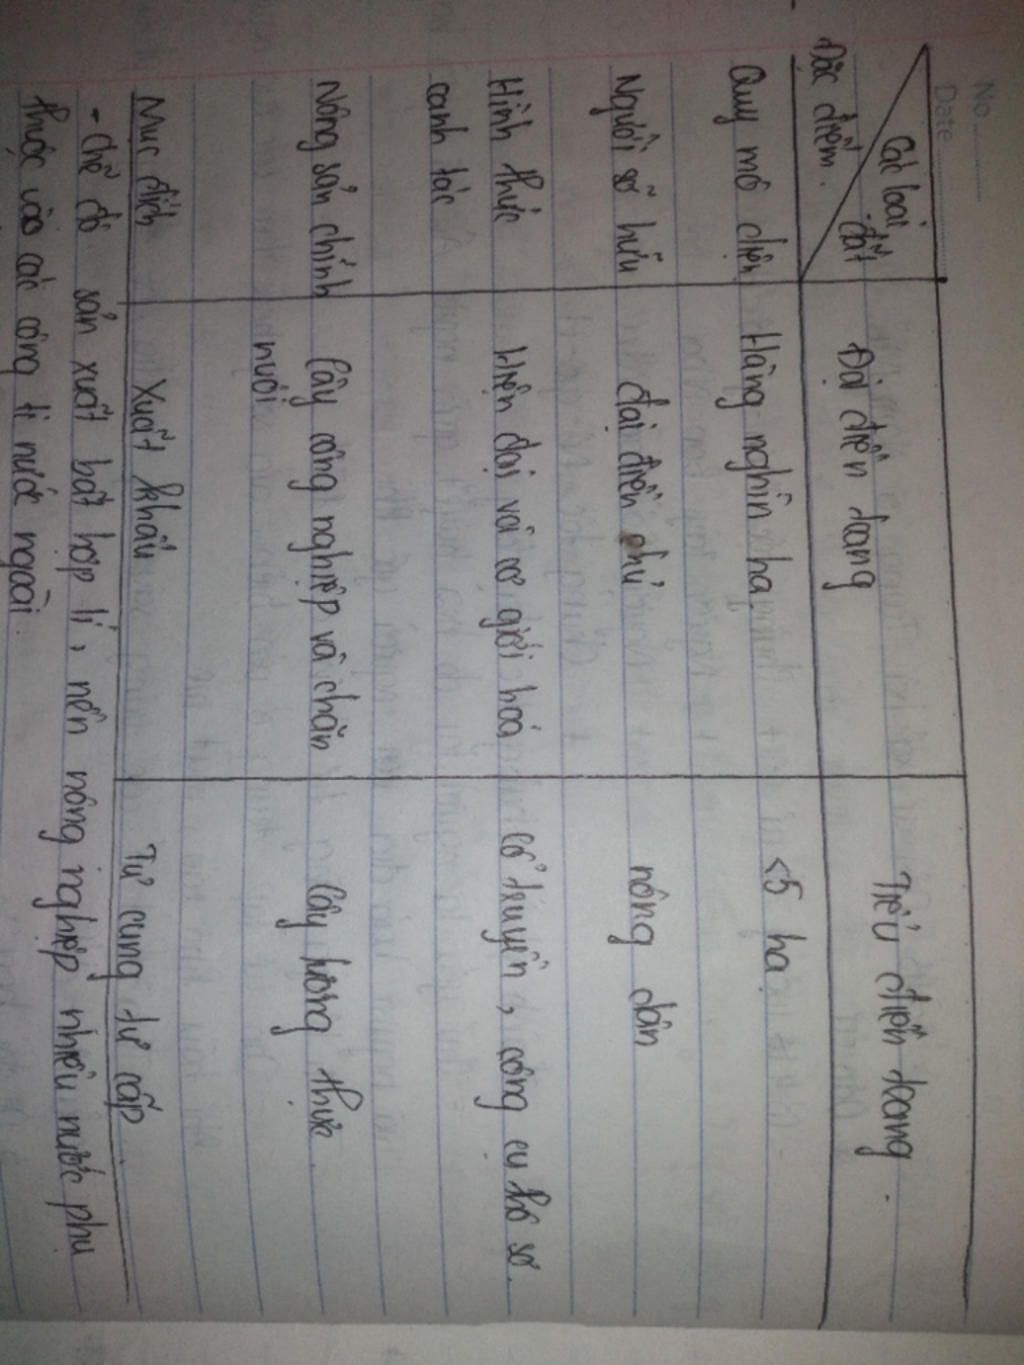 No
Date
Các loại đất
Đại điền trang
Tiểu điền trang.
Đặc điểm.
Quy mô diện
Hàng nghìn ha.
<5 ha
Người sỡ hữu
đại điền chủ
nông dân
Hình thức
Hiện đại và cơ giới hoá
Cổ truyền, công cụ thô sơ.
canh tác
Nông sản chính
Cây công nghiệp và chăn
Cây lương thực.
nuôi
Mục đích
Xuất khẩu
Tự cung tự cấp.
- Chế độ sản xuất bất hợp lí, nền nông nghiệp nhiều nước phụ
thuộc vào các công ti nước ngoài.